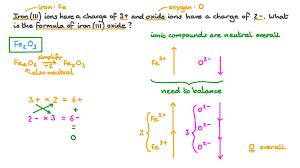 iron: Fe oxygen: O
Iron (III) ions have a charge of 3+ and oxide ions have a charge of 2-. What
is the formula of iron (III) oxide?
ionic compounds are neutral overall
Fe₂O₃
simplify
Fe₄O₆ ÷2 Fe₂O₃
also neutral
Fe³⁺ O²⁻
need to balance
3+ × 2 = 6+
+
2- × 3 = 6-
=
0
2 Fe³⁺ Fe³⁺
3 O²⁻ O²⁻ O²⁻
0 overall